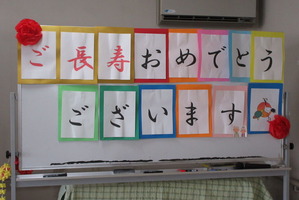 ご長寿おめでとう
ございます